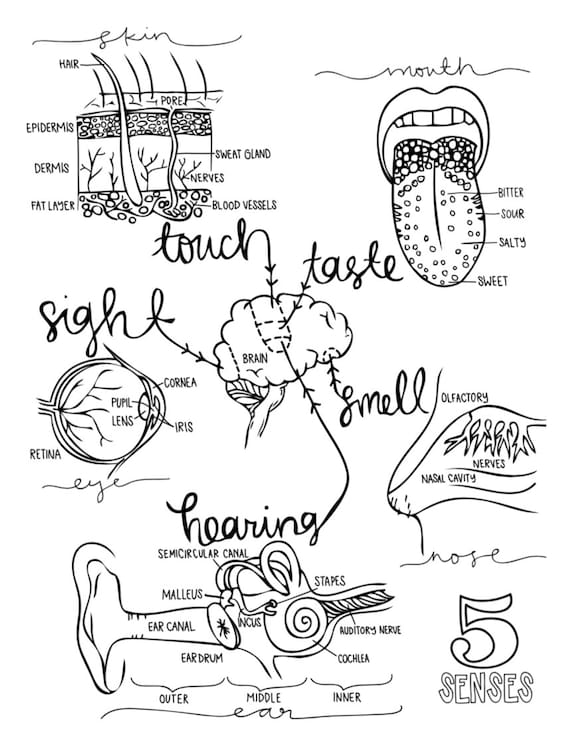 skin
HAIR
PORE
EPIDERMIS
SWEAT GLAND
DERMIS
NERVES
FAT LAYER
BLOOD VESSELS
mouth
BITTER
SOUR
SALTY
SWEET
touch
taste
sight
BRAIN
smell
CORNEA
PUPIL
LENS
IRIS
RETINA
eye
OLFACTORY
NERVES
NASAL CAVITY
nose
hearing
SEMICIRCULAR CANAL
MALLEUS
STAPES
EAR CANAL
INCUS
AUDITORY NERVE
EARDRUM
COCHLEA
OUTER
MIDDLE
INNER
ear
5
SENSES